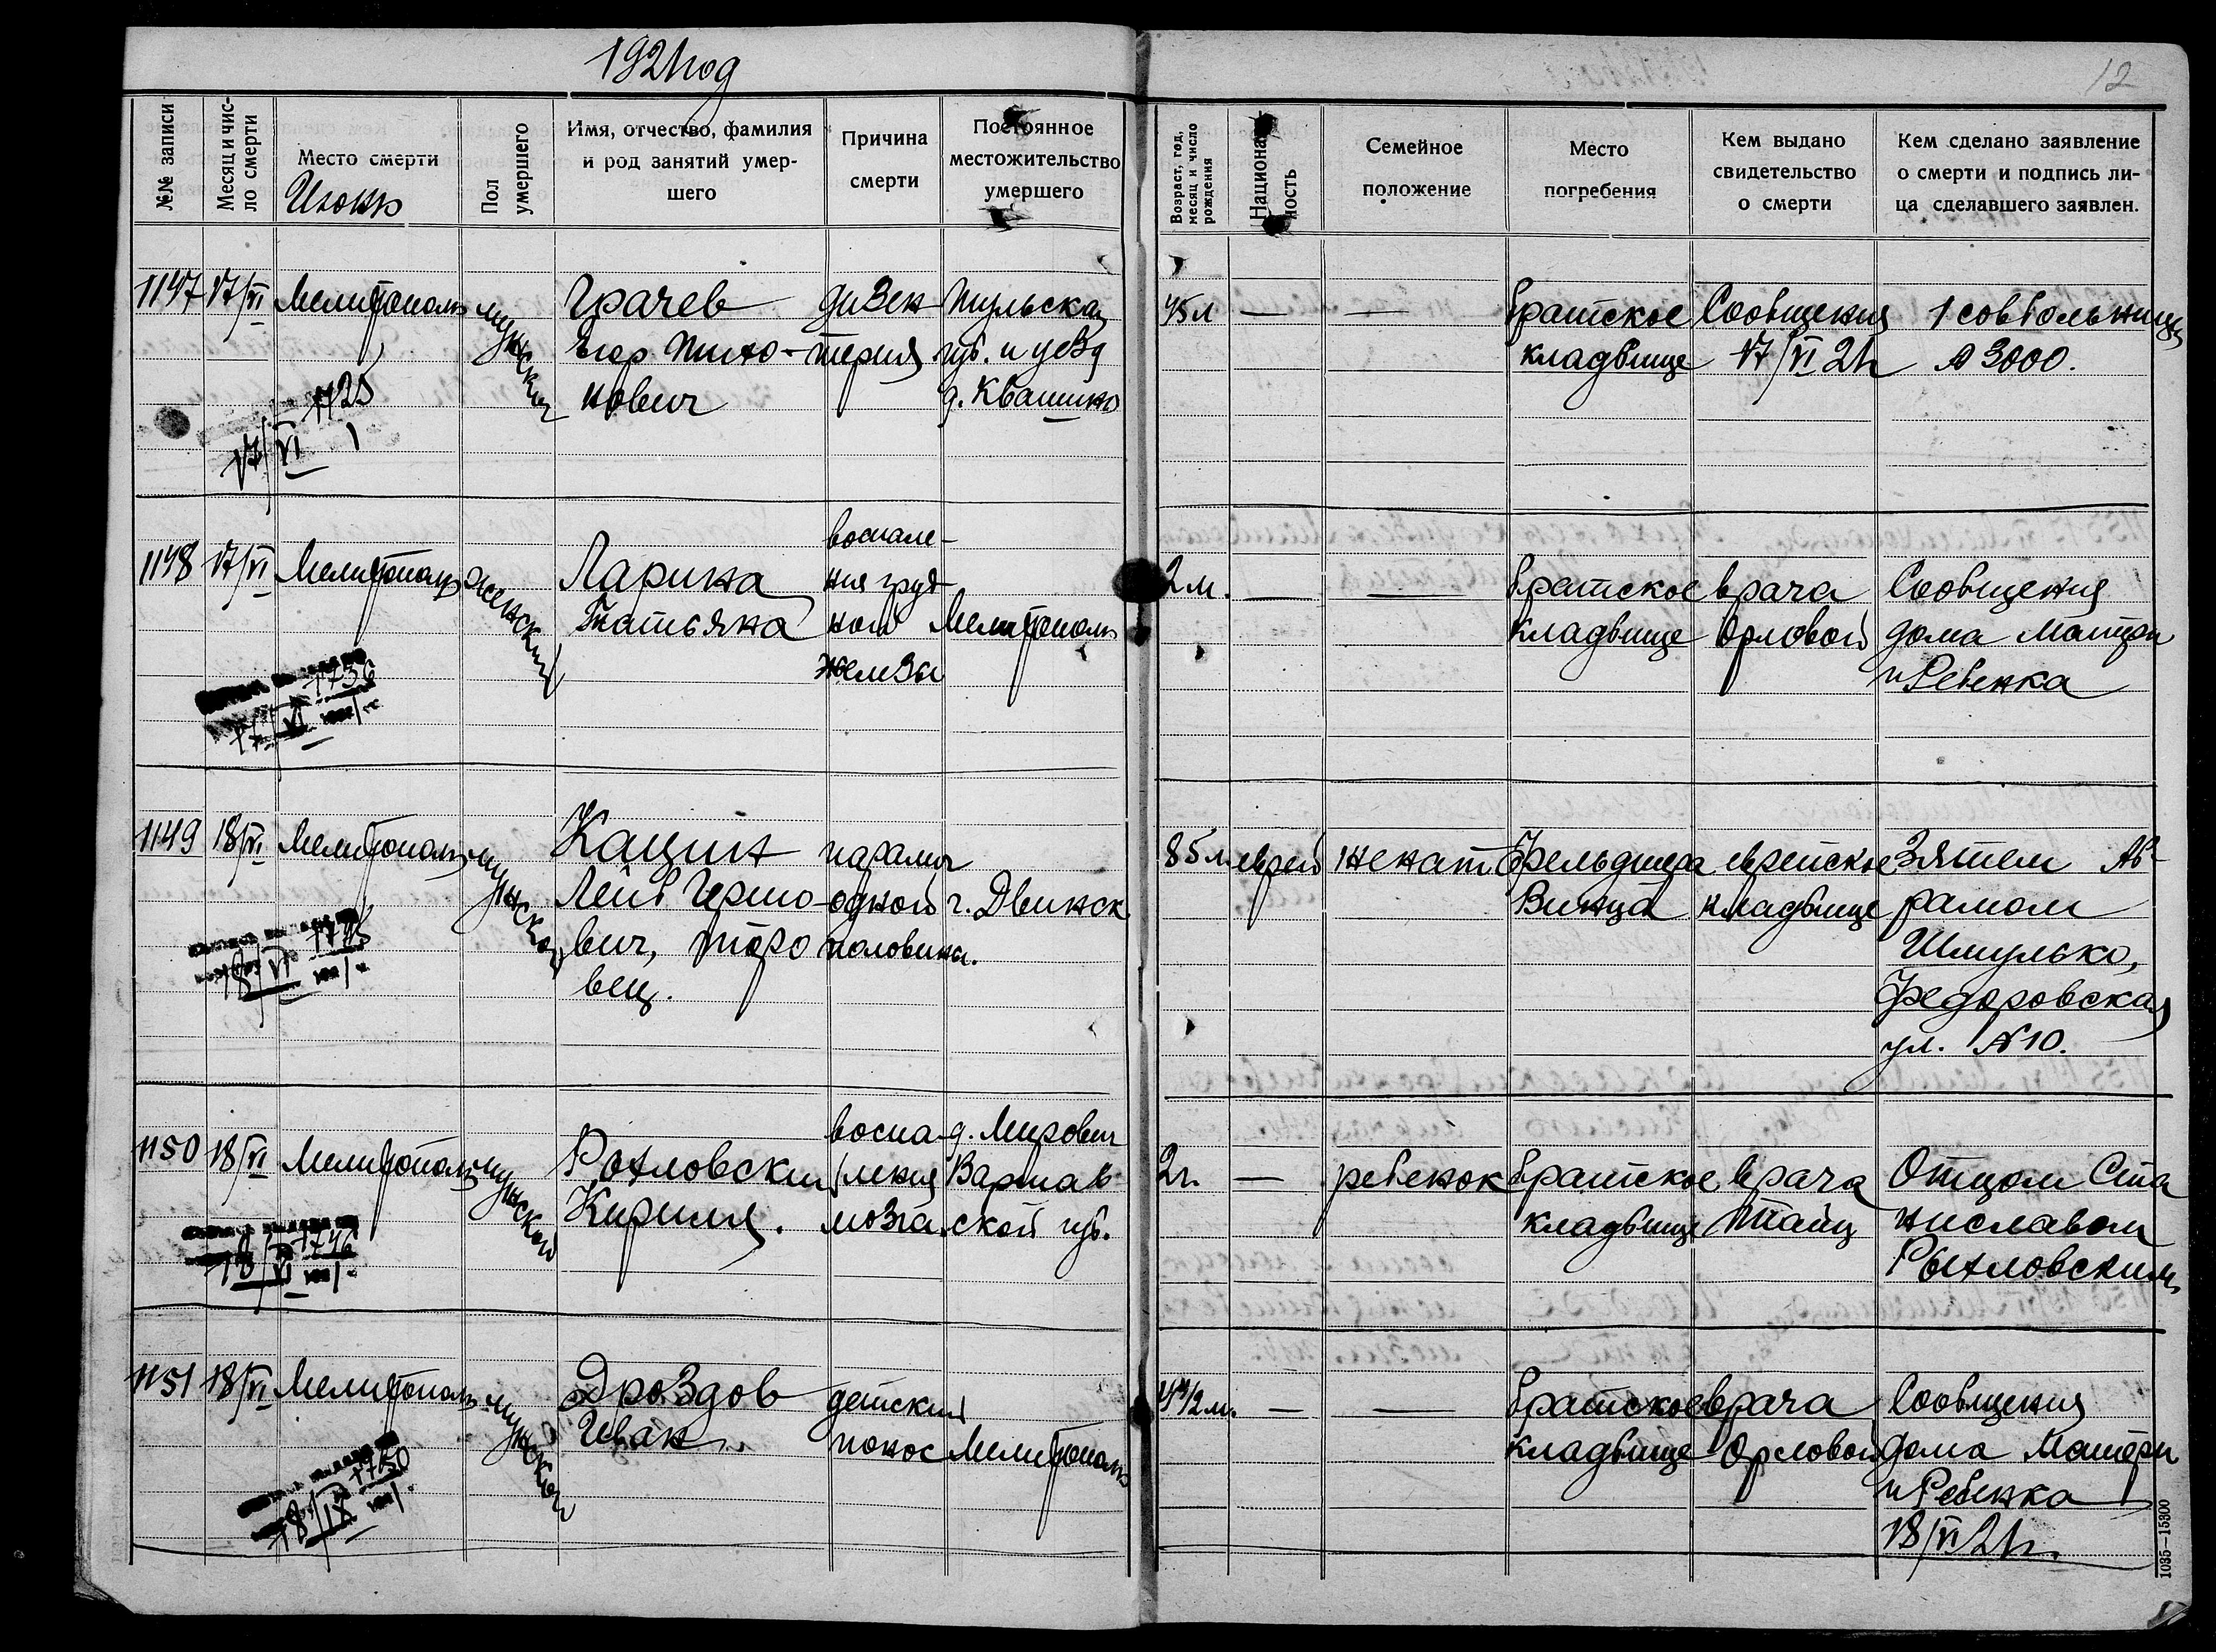 1921 год
12
№№ записи
Месяц и число смерти
Место смерти
Июнь
Пол умершего
Имя, отчество, фамилия
и род занятий умер-
шего
Причина
смерти
Постоянное
местожительство
умершего
Возраст, год,
месяц и число
рождения
Национальность
Семейное
положение
Место
погребения
Кем выдано
свидетельство
о смерти
Кем сделано заявление
о смерти и подпись ли-
ца сделавшего заявлен.
1147 17/VI Мелитополь мужской
Грачев
Егор Тихо-
нович
дизен-
терия
Тульская
губ. и уезд
д. Квашино
45 л — —
Братское
кладбище
Сообщения
17/VI 21 г
1 совбольницы
№ 3000.
1725
17/VI 1
1148 17/VI Мелитополь женский
Ларина
Татьяна
воспале-
ния груд-
ной
железы
Мелитополь
2 м. — —
Братское
кладбище
врача
Орловой
Сообщения
дома Матери
и Ребенка
1736
17/VI
1149 18/VI Мелитополь мужской
Кацин
Лейб Гершо-
вич, торго
вец.
паралич
одной
половины.
г. Двинск
85 л. еврей женат
Фельдшера
Винца
еврейское
кладбище
Зятем Аб-
рамом
Шмулько,
Федоровская
ул. № 10.
1745
18/VI
1150 18/VI Мелитополь мужской
Рохловский
Кирилл.
воспа-
ления
мозга.
д. Мирович
Варшав
ской губ.
2 г. — ребенок
Братское
кладбище
врача
Тайц
Отцом Ста
ниславом
Рохловским
1746
18/VI
1151 18/VI Мелитополь мужской
Дроздов
Иван.
детский
понос
Мелитополь
4 1/2 м. — —
Братское
кладбище
врача
Орловой
Сообщения
дома Матери
и Ребенка
18/VI 21 г.
1750
1035—15300